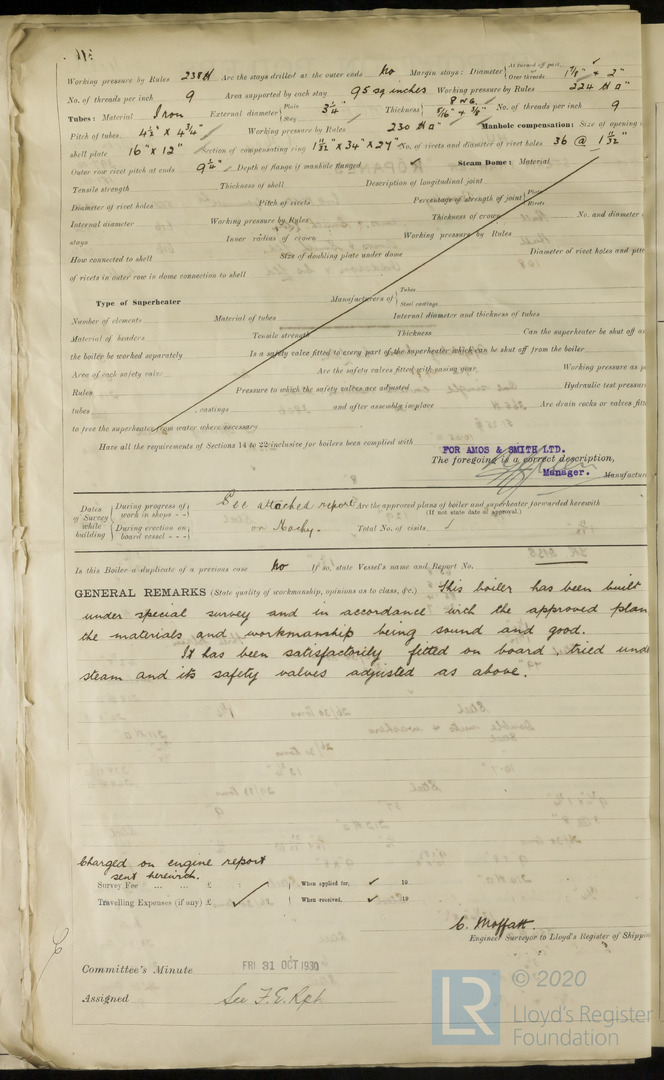 Working pressure by Rules 238 Are the stays drilled at the outer ends No Margin stays: Diameter { At turned off part, Over threads 1 7/8" + 2"
No. of threads per inch 9 Area supported by each stay 95 sq. inches Working pressure by Rules 224
Tubes: Material Iron External diameter { Plain Stay 3 1/4" Thickness { 8 W.G. 5/16" + 3/8" No. of threads per inch 9
Pitch of tubes 4 1/2" x 4 3/4" Working pressure by Rules 230 Manhole compensation: Size of opening i
shell plate 16" x 12" Section of compensating ring 1 11/32" x 34" x 27" No. of rivets and diameter of rivet holes 36 @ 1 11/32"
Outer row rivet pitch at ends 9 1/4" Depth of flange if manhole flanged Steam Dome: Material
Tensile strength Thickness of shell Description of longitudinal joint
Diameter of rivet holes Pitch of rivets Percentage of strength of joint { Plate Rivets
Internal diameter Working pressure by Rules Thickness of crown No. and diameter o
stays Inner radius of crown Working pressure by Rules
How connected to shell Size of doubling plate under dome Diameter of rivet holes and pitc
of rivets in outer row in dome connection to shell
Type of Superheater Manufacturers of { Tubes Steel castings
Number of elements Material of tubes Internal diameter and thickness of tubes
Material of headers Tensile strength Thickness Can the superheater be shut off an
the boiler be worked separately Is a safety valve fitted to every part of the superheater which can be shut off from the boiler
Area of each safety valve Are the safety valves fitted with easing gear Working pressure as p
Rules Pressure to which the safety valves are adjusted Hydraulic test pressur
tubes , castings and after assembly in place Are drain cocks or valves fitt
to free the superheater from water where necessary
Have all the requirements of Sections 14 to 22 inclusive for boilers been complied with
FOR AMOS & SMITH LTD.
The foregoing is a correct description,
Manager. Manufactur
Dates of Survey while building { During progress of work in shops - - } See attached report Are the approved plans of boiler and superheater forwarded herewith
(If not state date of approval.)
{ During erection on board vessel - - - } on Machy. Total No. of visits
Is this Boiler a duplicate of a previous case No If so, state Vessel's name and Report No.
GENERAL REMARKS (State quality of workmanship, opinions as to class, &c.) This boiler has been built
under special survey and in accordance with the approved plan
the materials and workmanship being sound and good.
It has been satisfactorily fitted on board, tried unde
steam and its safety valves adjusted as above.
Charged on engine report
sent herewith.
Survey Fee ... ... £ : : { When applied for, 19
Travelling Expenses (if any) £ : : { When received, 19
C. Moffatt.
Engineer Surveyor to Lloyd's Register of Shippin
Committee's Minute FRI 31 OCT 1930
Assigned See F.E. Rpt
© 2020
LR Lloyd's Register
Foundation